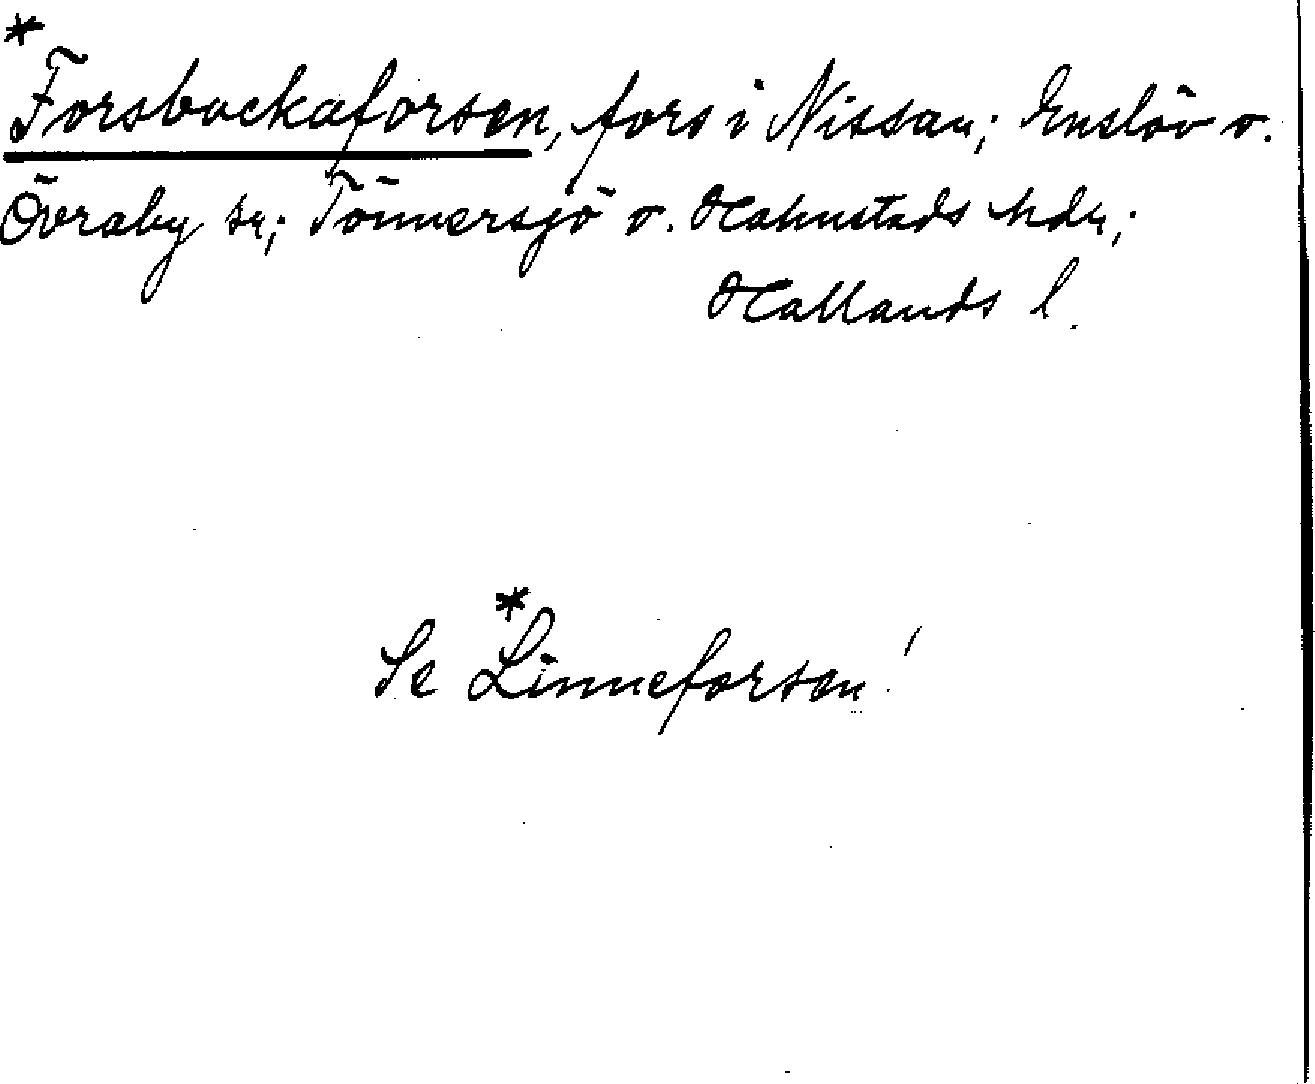 *
Forsbackaforsen, fors i Nissan; Enslöv o.
Övraby sn; Tönnersjö o. Halmstads hdn;
Hallands l.
*
Se Linneforsen!